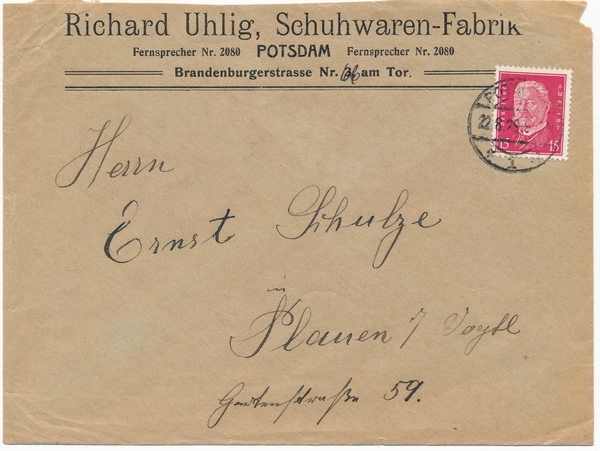 Richard Uhlig, Schuhwaren-Fabrik
Fernsprecher Nr. 2080 POTSDAM Fernsprecher Nr. 2080
Brandenburgerstrasse Nr. 36 am Tor.
22.8.29
1
15 15
Herrn
Ernst Schulze
in
Plauen / Vogtl
Gartenstraße 59.